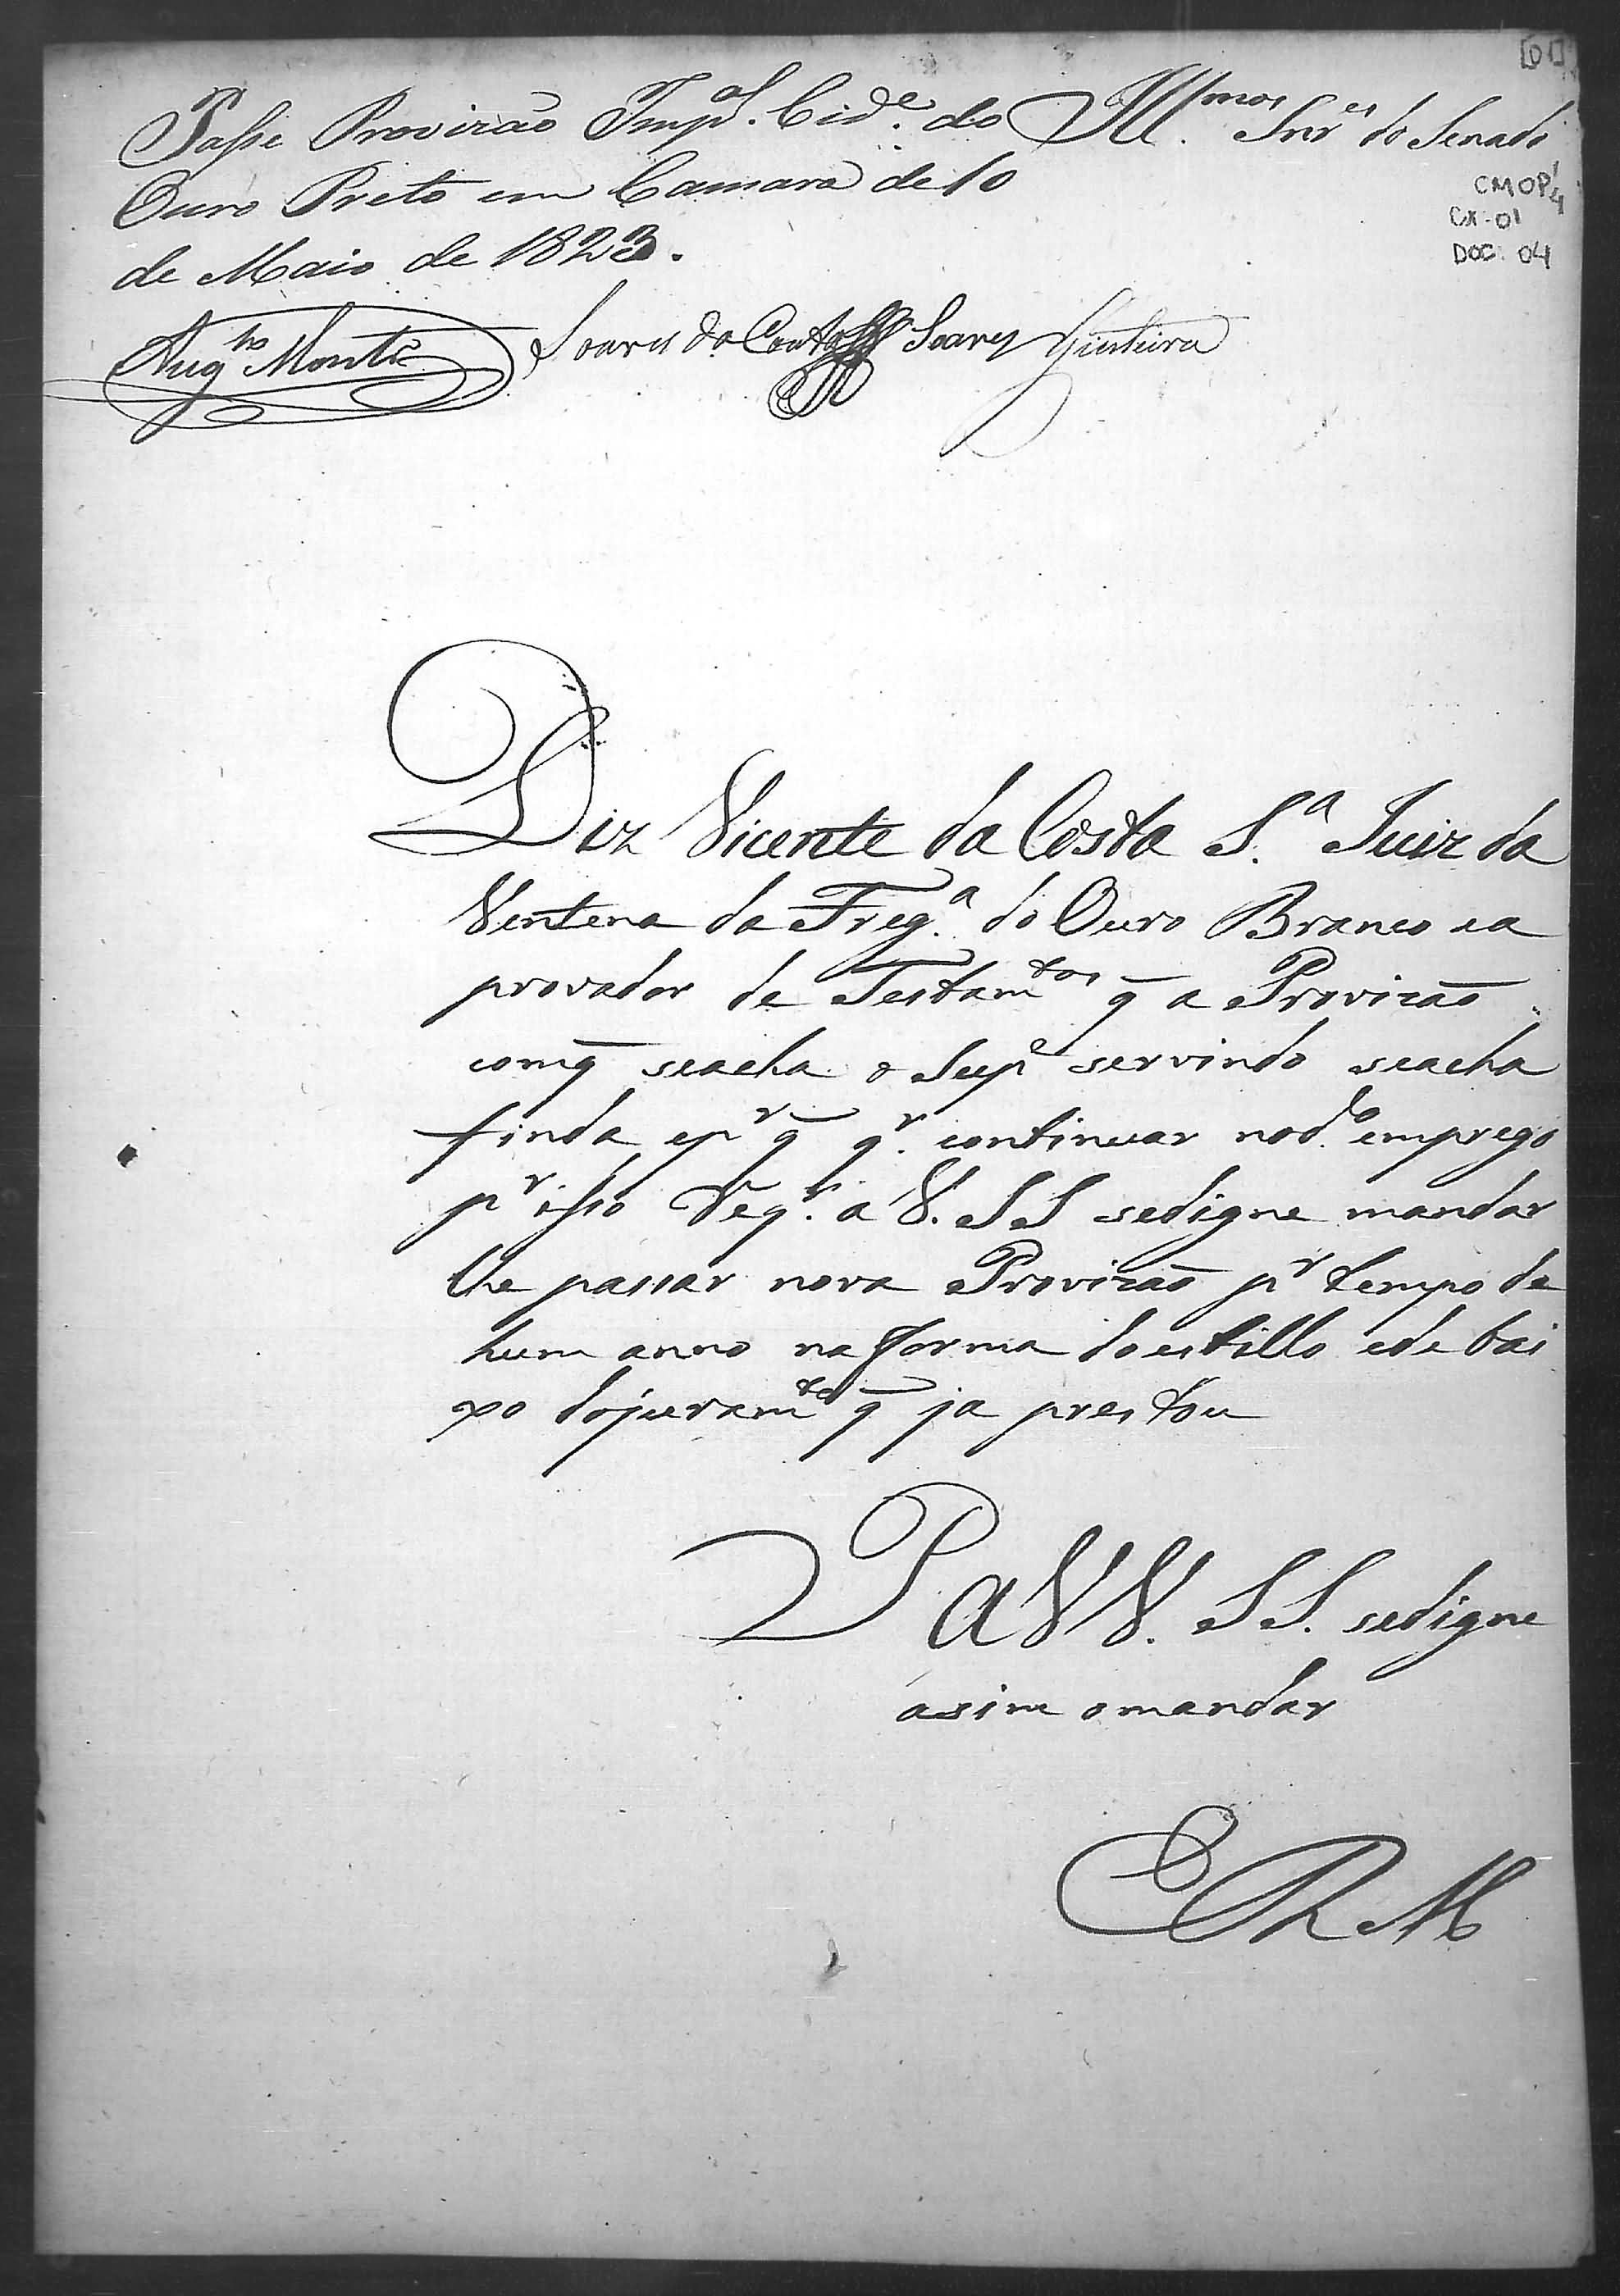 [01]
Passe Provizão Imp.al Cid.e do
Ouro Preto em Camara de 10
de Maio de 1823.
Ill.mos Snr.es do Senado
CMOP 1/4
CX-01
DOC. 04
Aug.to Montr.o Soares do Couto Soares
Diz Vicente da Costa S.a Juiz da
Ventena da Freg.a do Ouro Branco e a
provador de Testam.tos q̃ a Provizão
comq̃ seacha o Sup.e servindo seacha
finda, ep.r q̃ q.r continuar nod.o emprego
p.r isso Req.r a V. SS sedigne mandar
lhe passar nova Provizão p.r tempo de
hum anno na forma do estillo ede bai
xo dojuram.to q̃ ja prestou
P a VV. SS. sedigne
asim o mandar
E R M